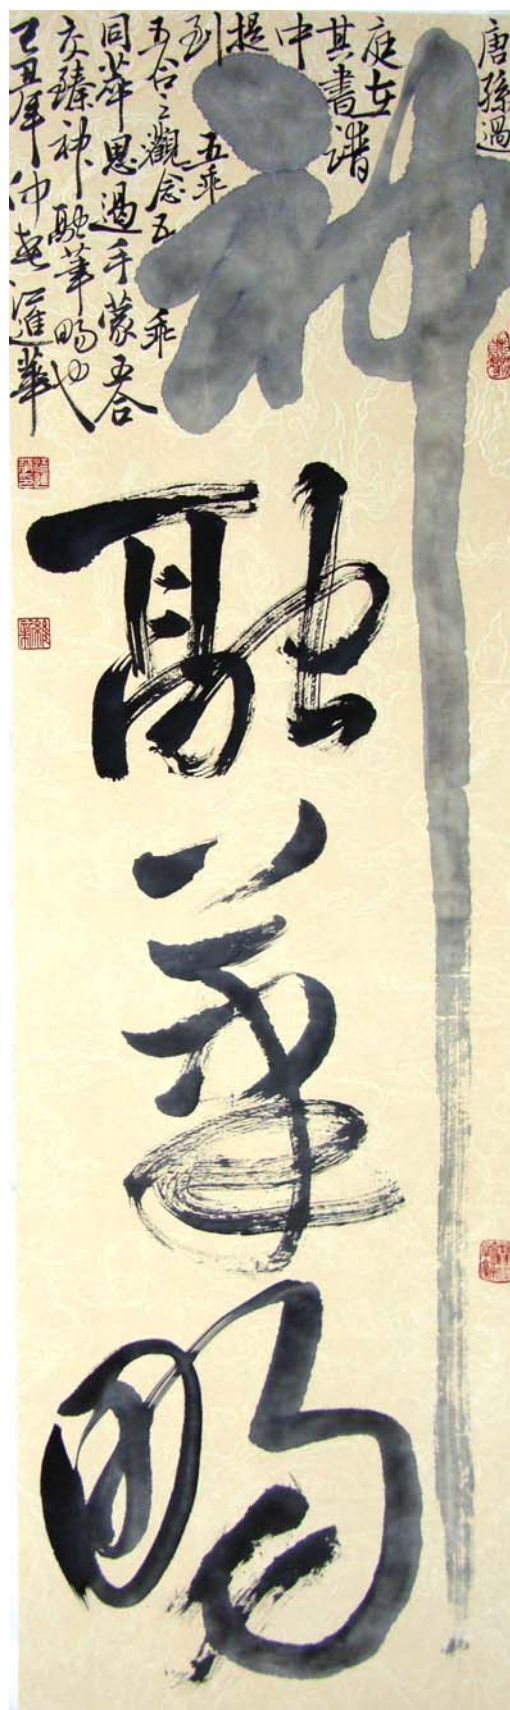 神融筆暢
唐孫過
庭在
其書譜
中
提
到五乖
五合之觀念五乖
同萃思遏手蒙五合
交臻神融筆暢也
己丑年仲春進華